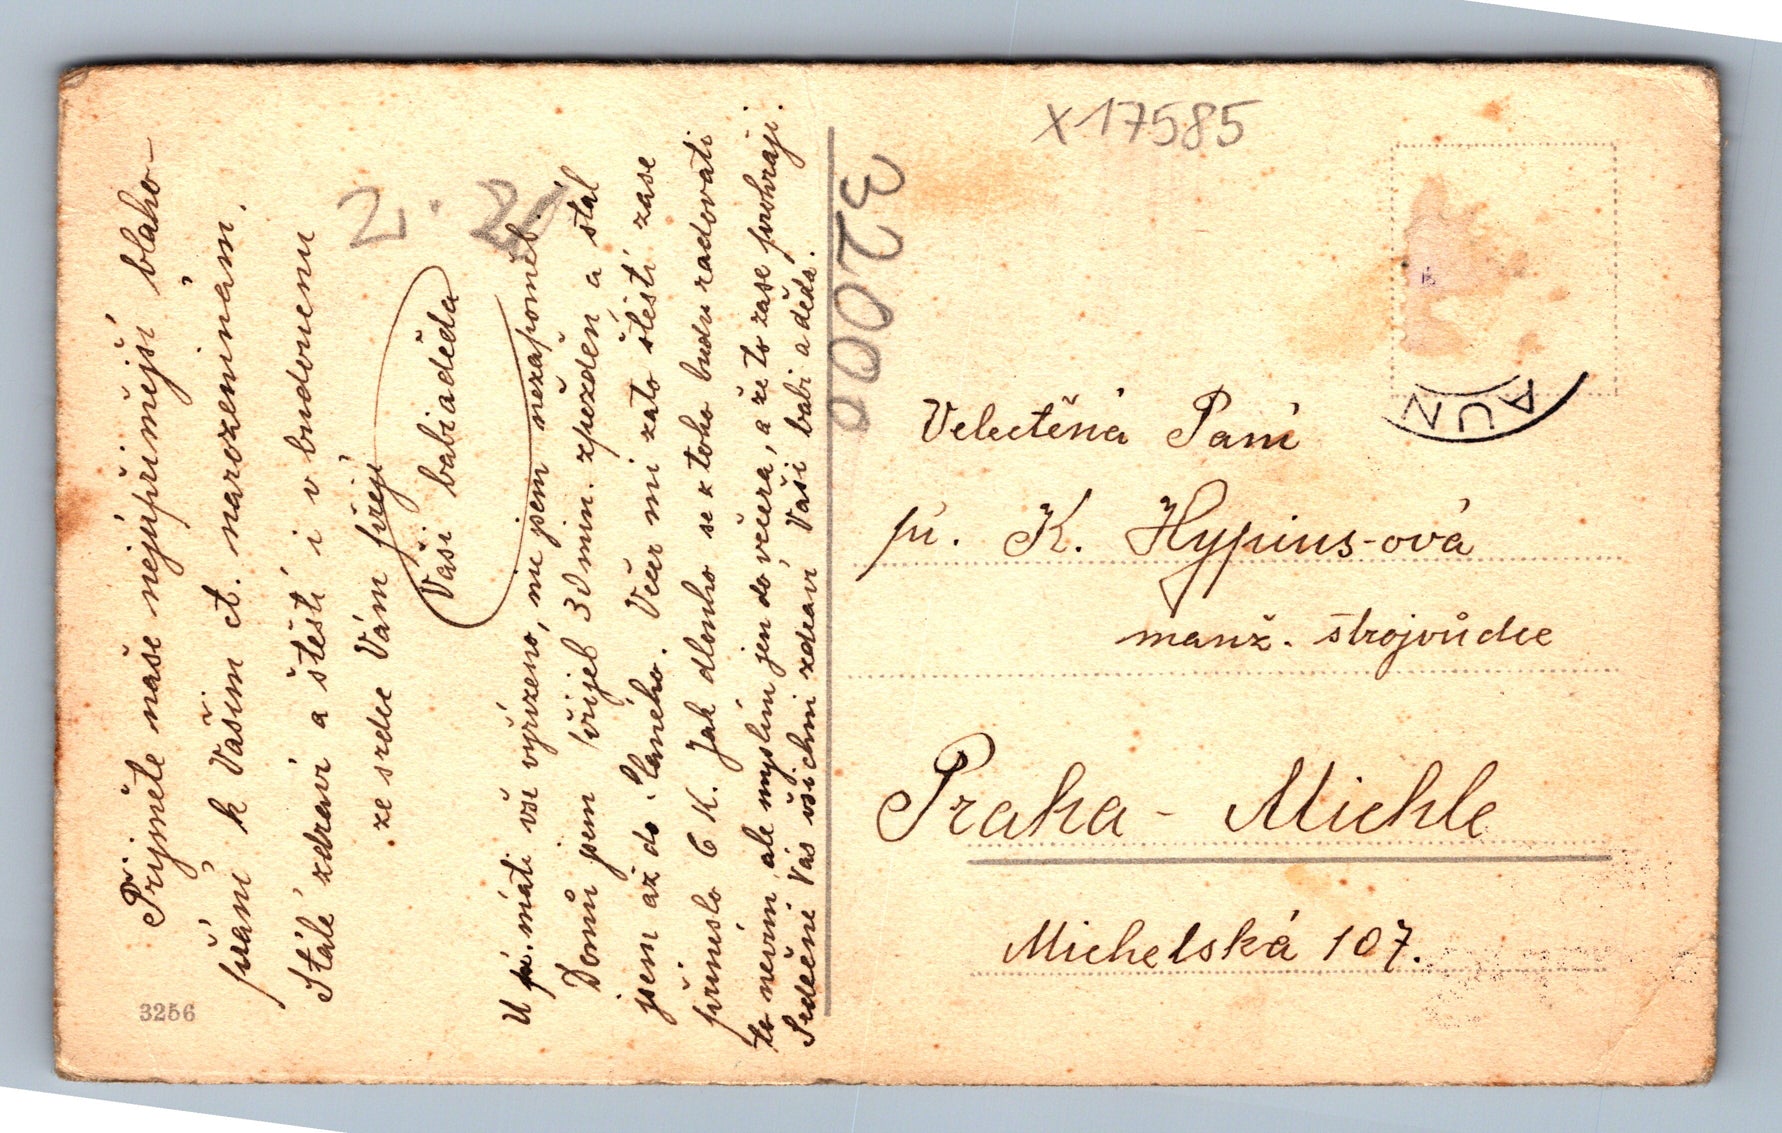 Přijměte naše nejupřímější blaho-
přání k Vašim ct. narozeninám.
Stálé zdraví a štěstí i v budoucnu
ze srdce Vám přejí
Vaši babi a děda
U pí. máti vše vyřízeno, nic jsem nezapoměl.
Domů jsem přijel 30 min. zpožděn a stál
jsem až do Slaného. Včer mi zato štěstí zase
přineslo 6 K. Jak dlouho se z toho budu radovati
to nevím, ale myslím jen do večera, a že to zase prohraji.
Srdečně Vás všichni zdraví Vaši babi a děda.
3256
X17585
32000
AUN
Velectěná Paní
pí. K. Hypius-ová
manž. strojvůdce
Praha - Michle
Michelská 107.